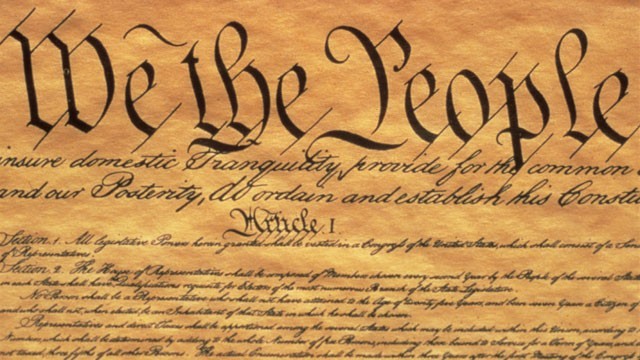 We the People
insure domestic Tranquility, provide for the common
and our Posterity, do ordain and establish this Constit
Article. I.
Section. 1. All legislative Powers herein granted shall be vested in a Congress of the United States, which shall consist of a Sen
of Representatives.
Section. 2. The House of Representatives shall be composed of Members chosen every second Year by the People of the several States
in each State shall have Qualifications requisite for Electors of the most numerous Branch of the State Legislature.
No Person shall be a Representative who shall not have attained to the Age of twenty five Years, and been seven Years a Citizen of
and who shall not, when elected, be an Inhabitant of that State in which he shall be chosen.
Representatives and direct Taxes shall be apportioned among the several States which may be included within this Union, according to
which shall be determined by adding to the whole Number of free Persons, including those bound to Service for a Term of Years, and
not taxed, three fifths of all other Persons. The actual Enumeration shall be made within three Years after the first